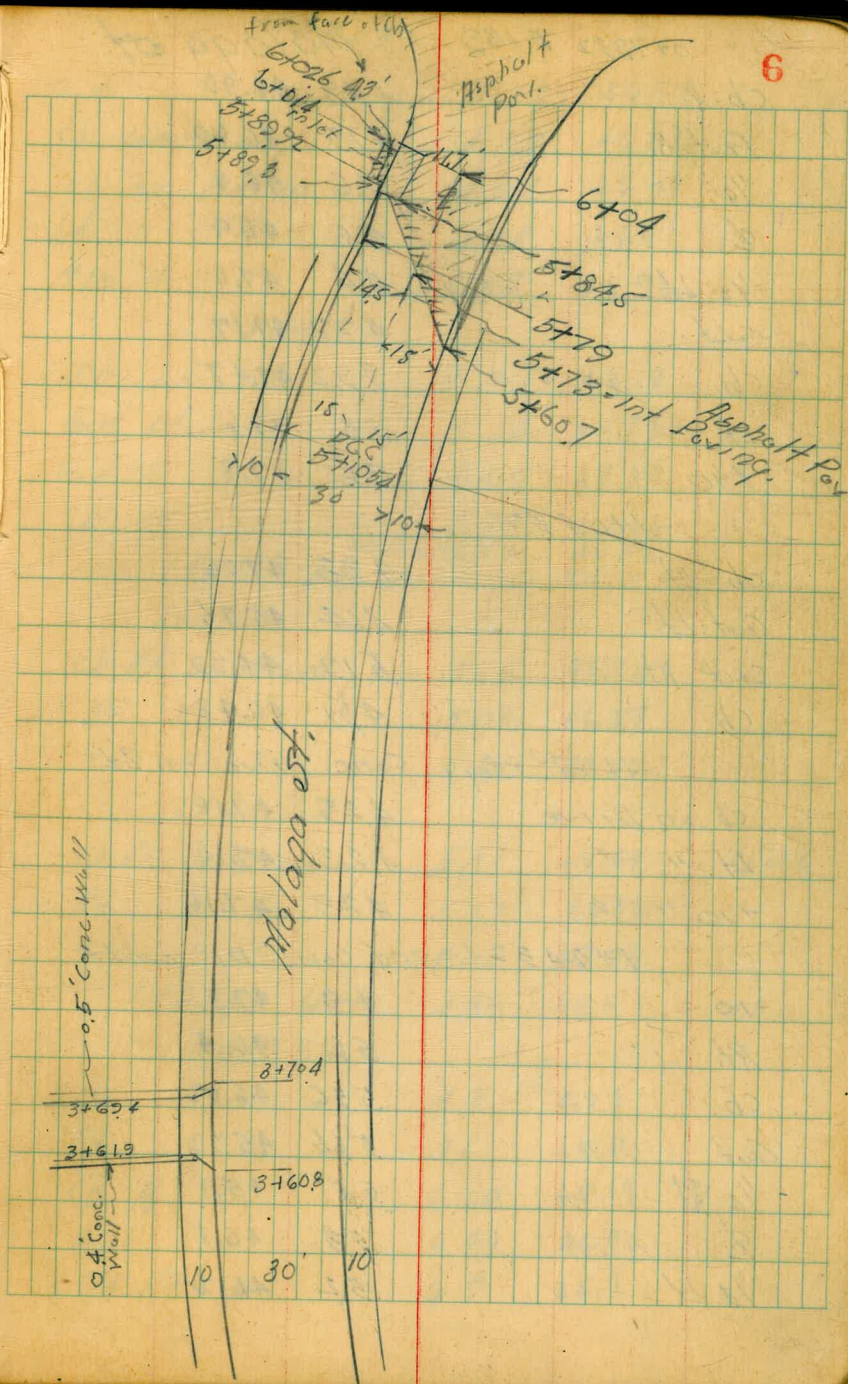 6
from face of Cb
6+02.6 4.3'
6+01.4
Inlet
5+89.92
5+89.3
Asphalt
Pav.
11.7'
6+04
5+84.5
5+79
5+73 = Int Asphalt Pav
Paving.
5+60.7
14.5
15'
15 15'
PCC
5+10.54
30
10
10
Malaga St.
0.5' Conc. Wall
3+70.4
3+69.4
3+61.9
3+60.8
0.4' Conc.
Wall
10 30' 10